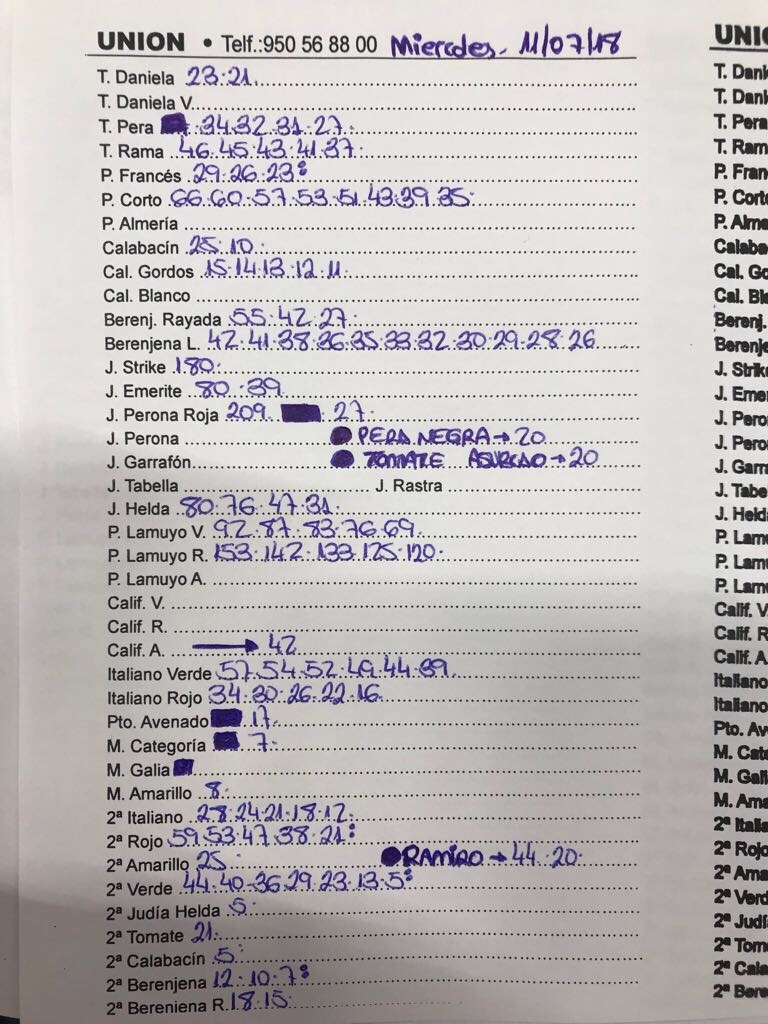 UNION • Telf.:950 56 88 00 Miercoles. 11/07/18
T. Daniela 23.21.
T. Daniela V.
T. Pera 34.32.31.27.
T. Rama 46.45.43.41.37.
P. Francés 29.26.23:
P. Corto 66.60.57.53.51.43.39.35.
P. Almería
Calabacín 25.10.
Cal. Gordos 15.14.13.12.11.
Cal. Blanco
Berenj. Rayada 55.42.27.
Berenjena L. 42.41.38.36.35.33.32.30.29.28.26
J. Strike 180.
J. Emerite 80.39
J. Perona Roja 209. 27.
J. Perona PERA NEGRA→20
J. Garrafón TOMATE ASURCAO→20
J. Tabella J. Rastra
J. Helda 80.76.47.31.
P. Lamuyo V. 92.87.83.76.69.
P. Lamuyo R. 153.142.133.125.120.
P. Lamuyo A.
Calif. V.
Calif. R.
Calif. A. → 42
Italiano Verde 57.54.52.49.44.39.
Italiano Rojo 34.30.26.22.16.
Pto. Avenado 17.
M. Categoría 7.
M. Galia
M. Amarillo 8.
2ª Italiano 28.24.21.18.12.
2ª Rojo 59.53.47.38.21:
2ª Amarillo 25 RAMIRO→44.20.
2ª Verde 44.40.36.29.23.13.5:
2ª Judía Helda 5.
2ª Tomate 21.
2ª Calabacín 5.
2ª Berenjena 12.10.7:
2ª Berenjena R. 18.15.
UNIO
T. Dani
T. Dani
T. Pera
T. Ram
P. Fran
P. Corto
P. Alme
Calaba
Cal. Go
Cal. Bl
Berenj.
Berenje
J. Strik
J. Eme
J. Pero
J. Pero
J. Garr
J. Tabe
J. Held
P. Lam
P. Lam
P. Lam
Calif. V
Calif. R
Calif. A
Italiano
Italiano
Pto. Av
M. Cate
M. Gali
M. Ama
2ª Itali
2ª Rojo
2ª Ama
2ª Verd
2ª Judí
2ª Tom
2ª Cala
2ª Bere